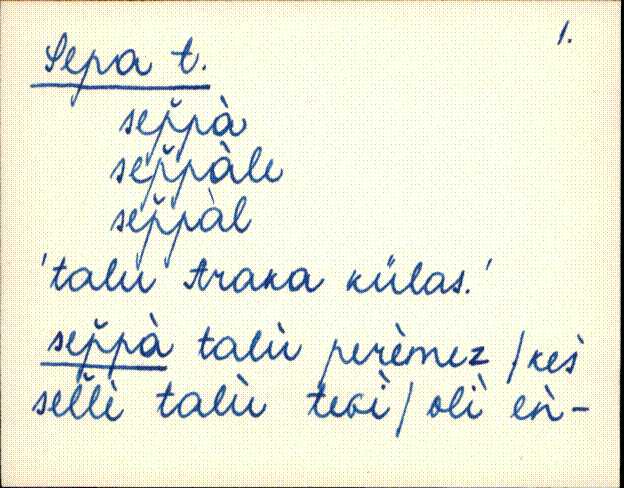 1.
Sepa t.
sep̆pà
sep̆pàle
sep̆pàl
'talu Araka külas.'
sep̆pà talù perèmez / kes̀
sel̆lè talù teɢì / olì eǹ-